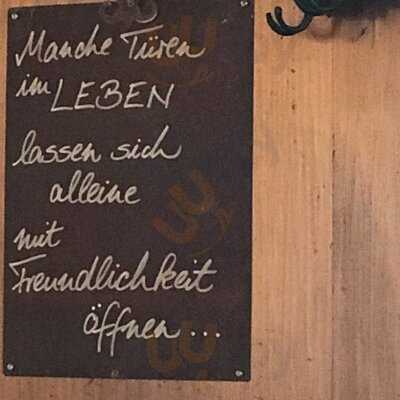 Manche Türen
im LEBEN
lassen sich
alleine
mit
Freundlichkeit
öffnen...